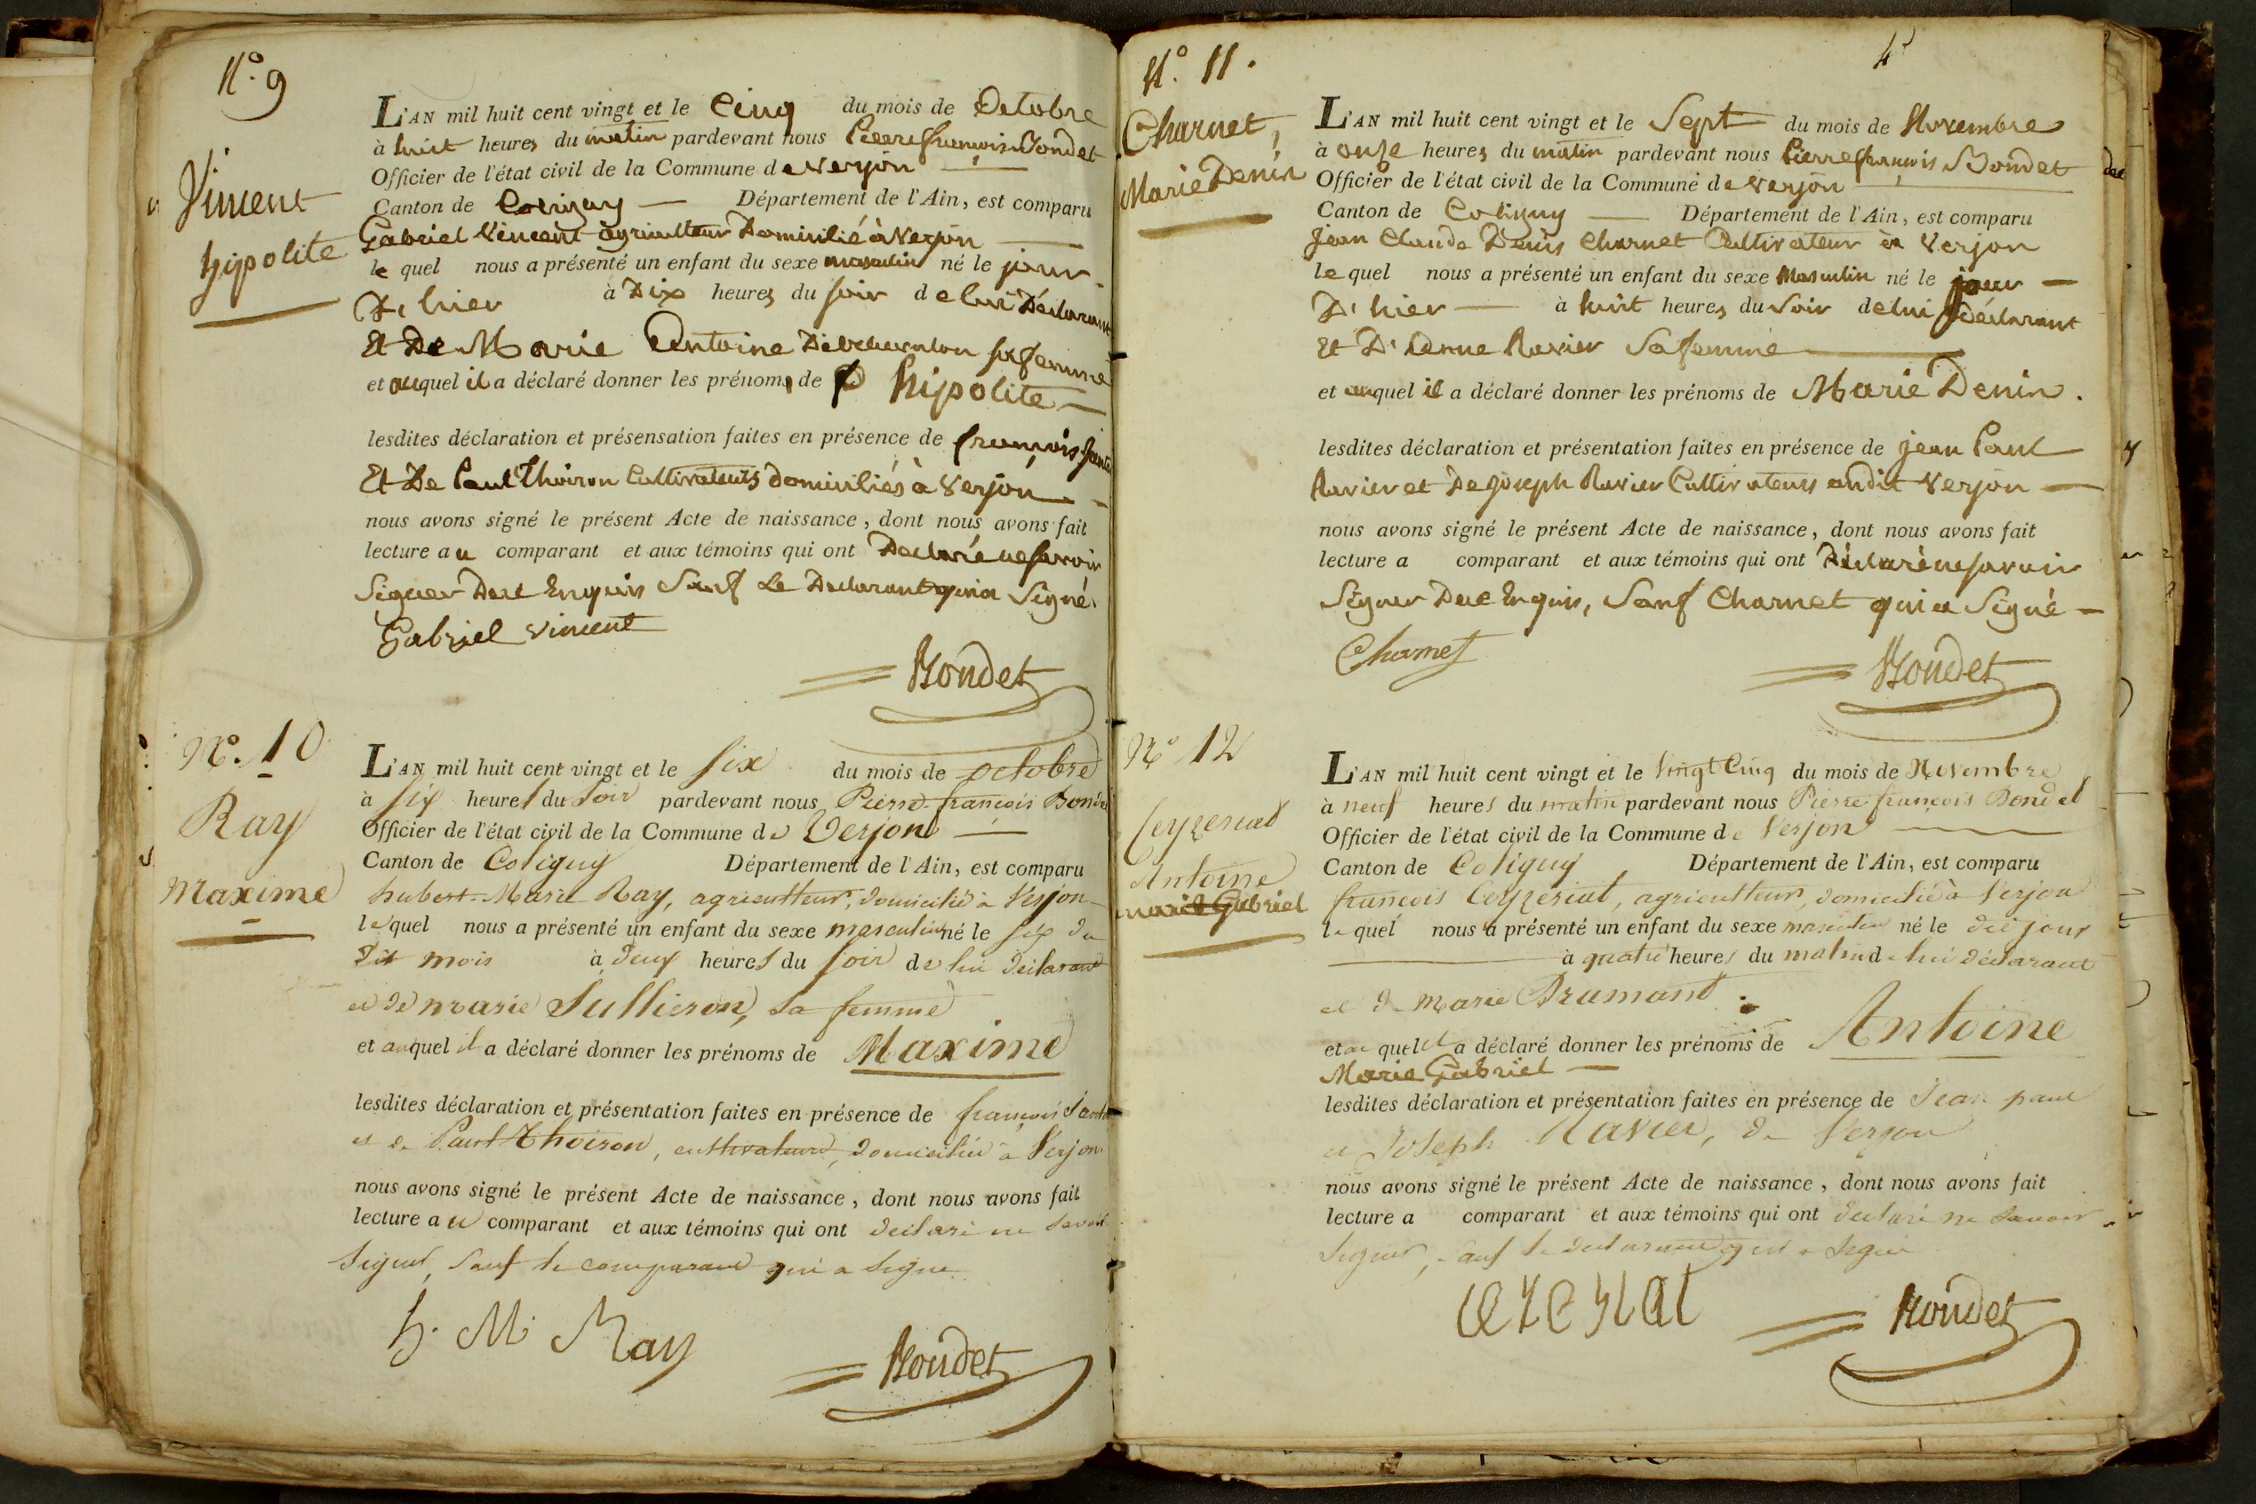 N.º 9
Vincent
hypolite
L'AN mil huit cent vingt et le Cinq du mois de Octobre
à huit heures du matin pardevant nous Pierre françois Bondet
Officier de l'état civil de la Commune de Verjon
Canton de Coligny Département de l'Ain, est comparu
Gabriel Vincent agriculteur Domicilié à Verjon
le quel nous a présenté un enfant du sexe masculin né le jour
D'hier à Dix heures du soir de lui Déclarant
Et De Marie Antoine sa femme
et auquel il a déclaré donner les prénoms de hipolite
lesdites déclaration et présensation faites en présence de françois
Et De Paul Thoiron Cultivateurs Domiciliés à Verjon
nous avons signé le présent Acte de naissance, dont nous avons fait
lecture au comparant et aux témoins qui ont Déclaré ne savoir
Signer De ce Enquis Sauf Le Declarant qui a Signé
Gabriel Vincent
Bondet
N.º 10
Ray
Maxime
L'AN mil huit cent vingt et le Six du mois de octobre
à six heures du Soir pardevant nous Pierre françois Bondet
Officier de l'état civil de la Commune de Verjon
Canton de Coligny Département de l'Ain, est comparu
hubert Marie Ray, agriculteur, domicilié à Verjon
le quel nous a présenté un enfant du sexe masculin né le six du
dit mois à deux heures du soir de lui déclarant
et de marie Sullieron, sa femme
et auquel il a déclaré donner les prénoms de Maxime
lesdites déclaration et présentation faites en présence de françois
et de Paul Thoiron, cultivateurs, domiciliés à Verjon
nous avons signé le présent Acte de naissance, dont nous avons fait
lecture au comparant et aux témoins qui ont déclaré ne savoir
signer, sauf le comparant qui a signé
h. M. Ray
Bondet
4
N.º 11.
Charnet,
Marie Denin
L'AN mil huit cent vingt et le Sept du mois de Novembre
à onze heures du matin pardevant nous Pierre françois Bondet
Officier de l'état civil de la Commune de Verjon
Canton de Coligny Département de l'Ain, est comparu
Jean Claude Denis Charnet Cultivateur à Verjon
le quel nous a présenté un enfant du sexe Masculin né le jour
D'hier à huit heures du Soir de lui Déclarant
Et D' Ravier Sa femme
et auquel il a déclaré donner les prénoms de Marie Denin.
lesdites déclaration et présentation faites en présence de jean Paul
Ravier et De joseph Ravier Cultivateurs audit Verjon
nous avons signé le présent Acte de naissance, dont nous avons fait
lecture a comparant et aux témoins qui ont Déclaré ne savoir
Signer De ce Enquis, Sauf Charnet qui a Signé
Charnet
Bondet
Nº 12
Ceyzeriat
Antoine
marie Gabriel
L'AN mil huit cent vingt et le Vingt Cinq du mois de Novembre
à neuf heures du matin pardevant nous Pierre françois Bondet
Officier de l'état civil de la Commune de Verjon
Canton de Coligny Département de l'Ain, est comparu
françois Ceyzeriat, agriculteur, domicilié à Verjon
le quel nous a présenté un enfant du sexe masculin né le dit jour
à quatre heures du matin de lui déclarant
et de marie Bramant.
et au quel il a déclaré donner les prénoms de Antoine
Marie Gabriel
lesdites déclaration et présentation faites en présence de Jean paul
et Joseph Ravier, de Verjon
nous avons signé le présent Acte de naissance, dont nous avons fait
lecture a comparant et aux témoins qui ont déclaré ne savoir
signer, sauf le déclarant qui a signé
Bondet